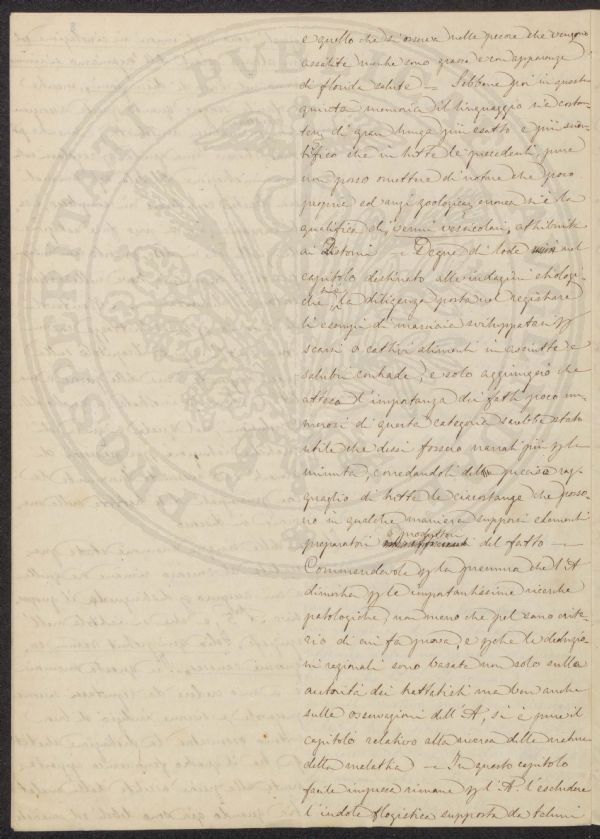 e quello che s'osserva nelle pecore che vengono
assalite mentre sono grasse e con apparenza
di florida salute — Sebbene poi in questa
quinta memoria il linguaggio sia
di gran lunga più esatto e più scien-
tifico che in tutte le precedenti, pure
non posso omettere di notare che poco
propria ed anzi zoologica erronea si è la
qualifica di vermi vescicolari, attribuita
ai Distomi — Degna di lode nel
capitolo destinato alle indagini etiologi-
che, è la diligenza posta nel registrare
li esempi di marciaia sviluppatasi p
scarsi o cattivi alimenti in asciutte e
salubri contrade, e solo aggiungerò che
attesa l'importanza dei fatti poco nu-
merosi di questa categoria sarebbe stato
utile che dessi fossero narrati più p la
minuta, corredandoli della precisa rag-
guaglio di tutte le circostanze che posso-
no in qualche maniera supporsi elementi
preparatori o produttori del fatto —
Commendevole p la premura che l'A
dimostra p le importantissime ricerche
patologiche, non meno che pel sano crite-
rio di cui fa prova, e p che le deduzio-
ni razionali sono basate non solo sulla
autorità dei trattatisti ma ben anche
sulle osservazioni dell'A, si è pure il
capitolo relativo alla ricerca della natura
della malattia — In questo capitolo
facile impresa rimane p l'A. l'escludere
l'indole flogistica supposta da taluni